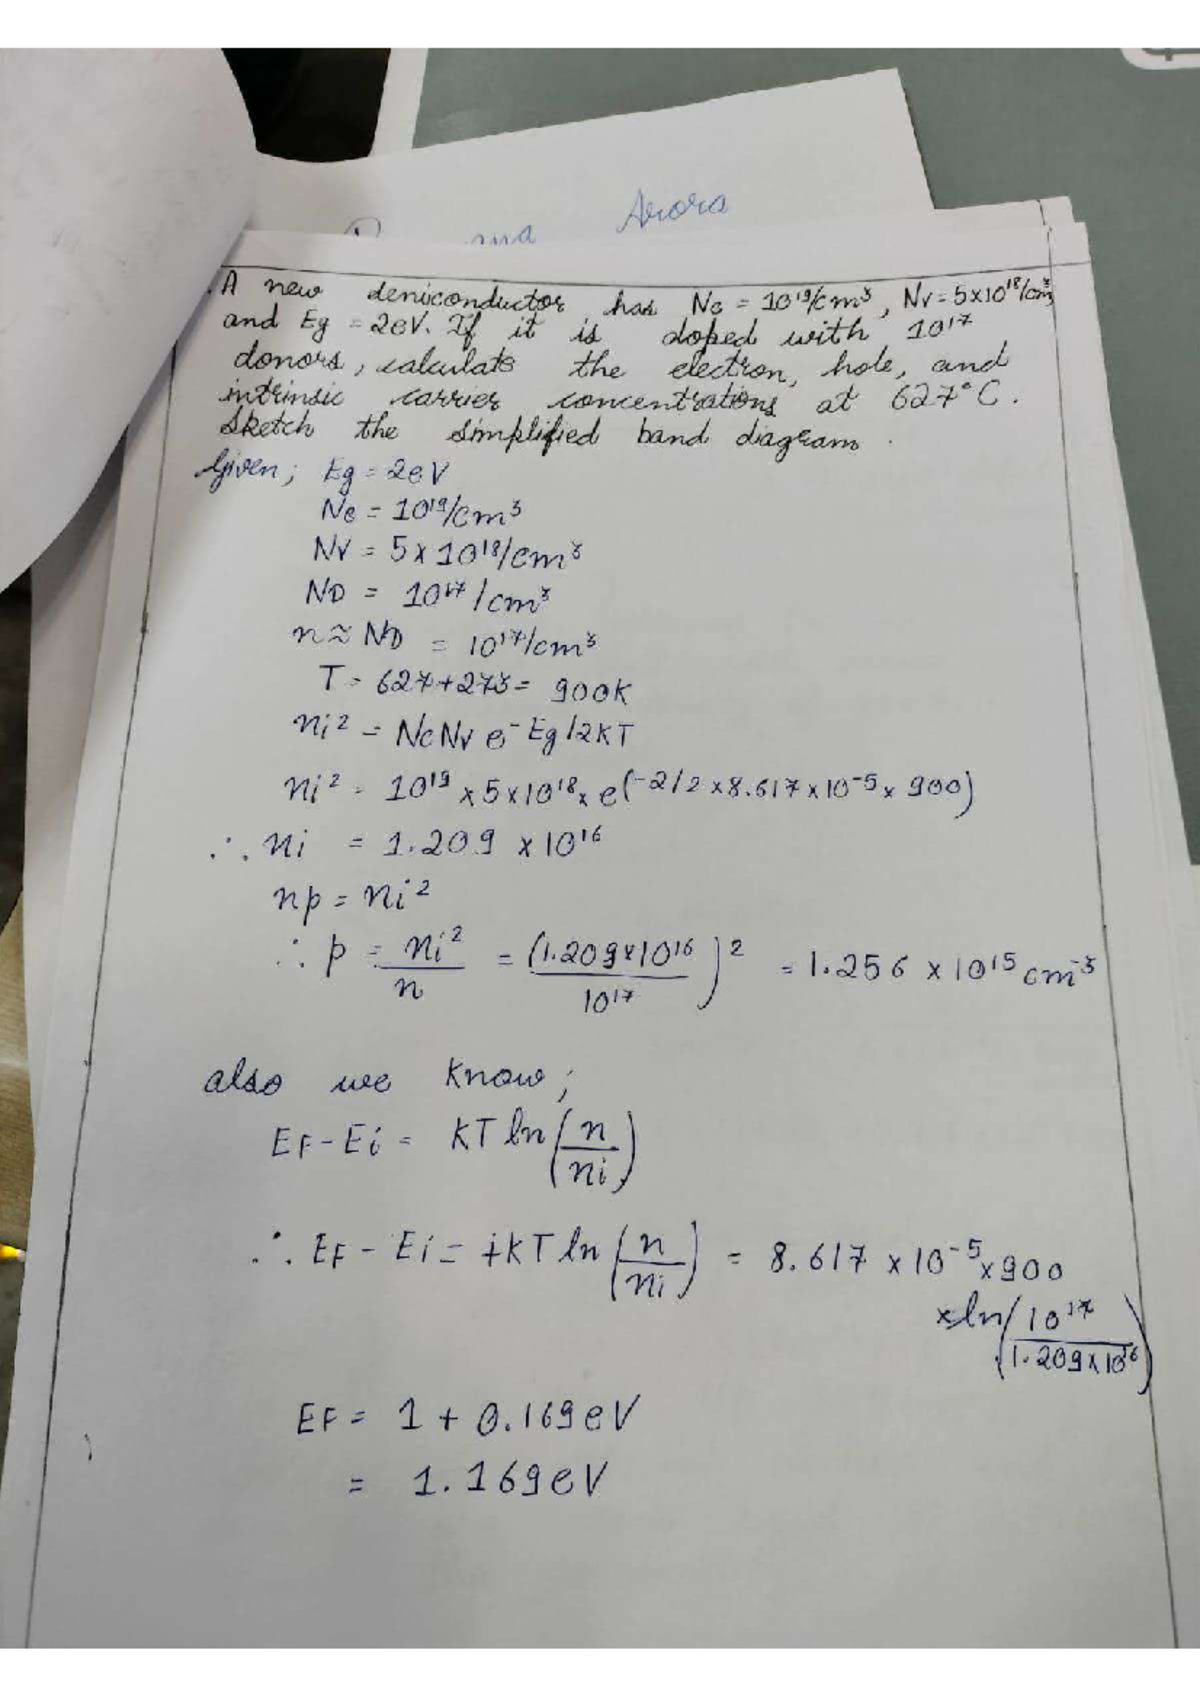 Arora
A new deniconductor has Nc = 10¹⁹/cm³, Nv = 5x10¹⁸/cm³
and Eg = 2eV. If it is doped with 10¹⁷
donors, calculate the electron, hole, and
intrinsic carrier concentrations at 627°C.
Sketch the simplified band diagram.
Given; Eg = 2eV
Nc = 10¹⁹/cm³
NV = 5 x 10¹⁸/cm³
ND = 10¹⁷/cm³
n ≈ ND = 10¹⁷/cm³
T = 627+273 = 900K
ni² = NcNv e^-Eg/2KT
ni² = 10¹⁹ x 5x10¹⁸ x e^(-2/2 x 8.617 x 10⁻⁵ x 900)
∴ ni = 1.209 x 10¹⁶
np = ni²
∴ p = ni²/n = (1.209x10¹⁶/10¹⁷)² = 1.256 x 10¹⁵ cm⁻³
also we know;
EF - Ei = KT ln(n/ni)
∴ EF - Ei = +KT ln(n/ni) = 8.617 x 10⁻⁵ x 900
x ln(10¹⁷/1.209x10¹⁶)
EF = 1 + 0.169eV
= 1.169eV